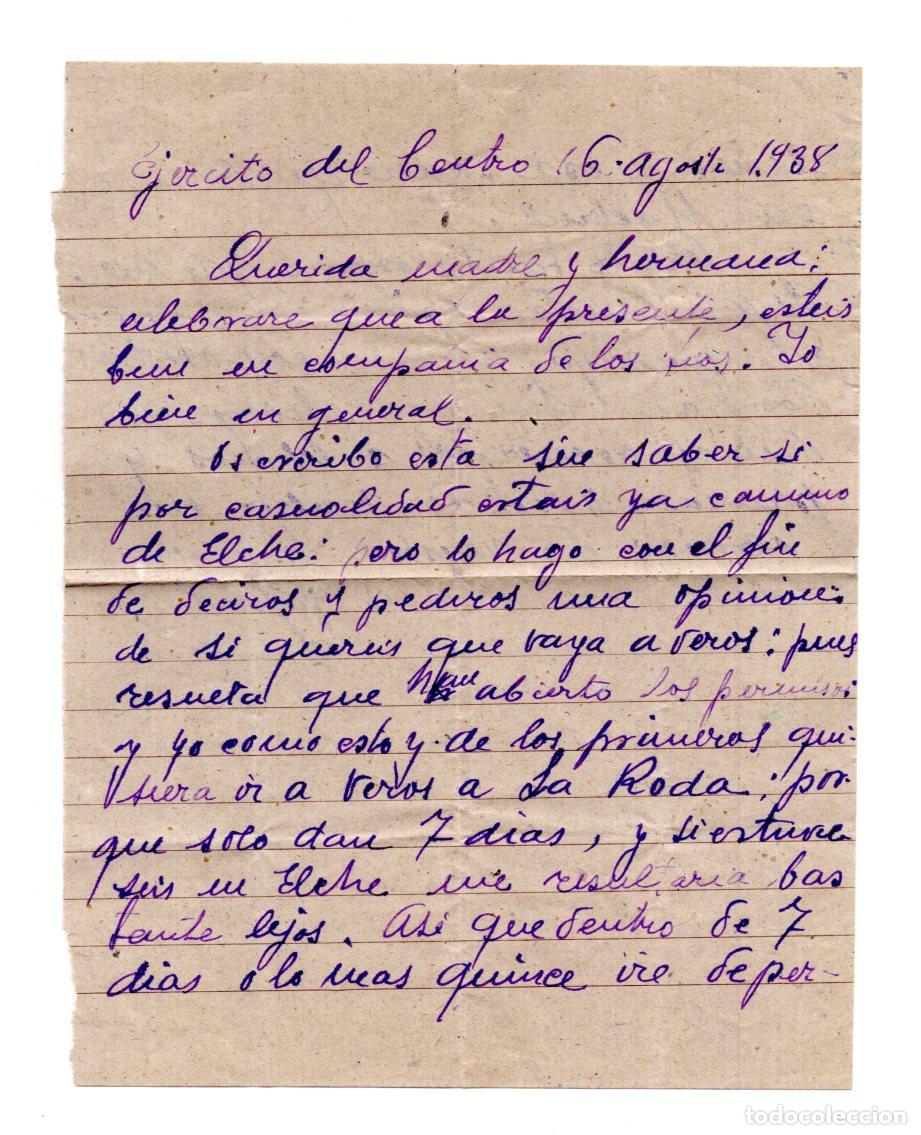 Ejercito del Centro 16. agosto 1.938
Querida madre y hermana:
celebrare que a la presente, esteis
bien en compañia de los tios. Yo
bien en general.
Os escribo esta sin saber si
por casualidad estais ya camino
de Elche: pero lo hago con el fin
de deciros y pediros una opinion:
de si quereis que vaya a veros: pues
resueta que han abierto los permisos
y yo como estoy de los primeros qui-
siera ir a veros a La Roda; por-
que solo dan 7 dias, y si estuvie
seis en Elche me resultaria bas
tante lejos. Asi que dentro de 7
dias o lo mas quince ire de per-
todocoleccion